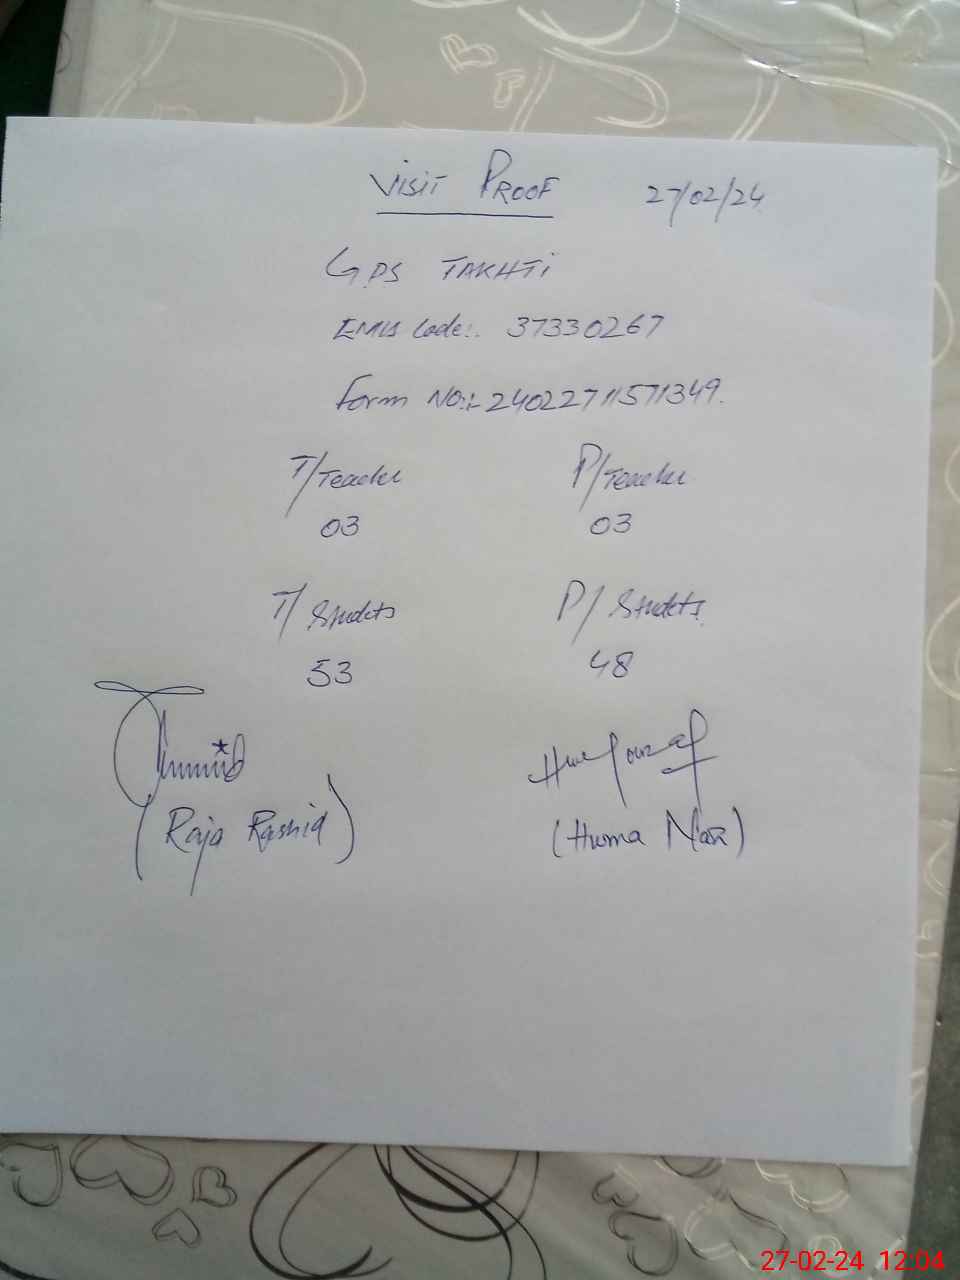 VISIT PROOF 27/02/24
GPS TAKHTI
EMIS Code:. 37330267
Form NO:- 24022711571349.
T/Teacher P/Teacher
03 03
T/Studets P/Studets.
53 48
(Raja Rashid) (Huma Naz)
27-02-24 12:04